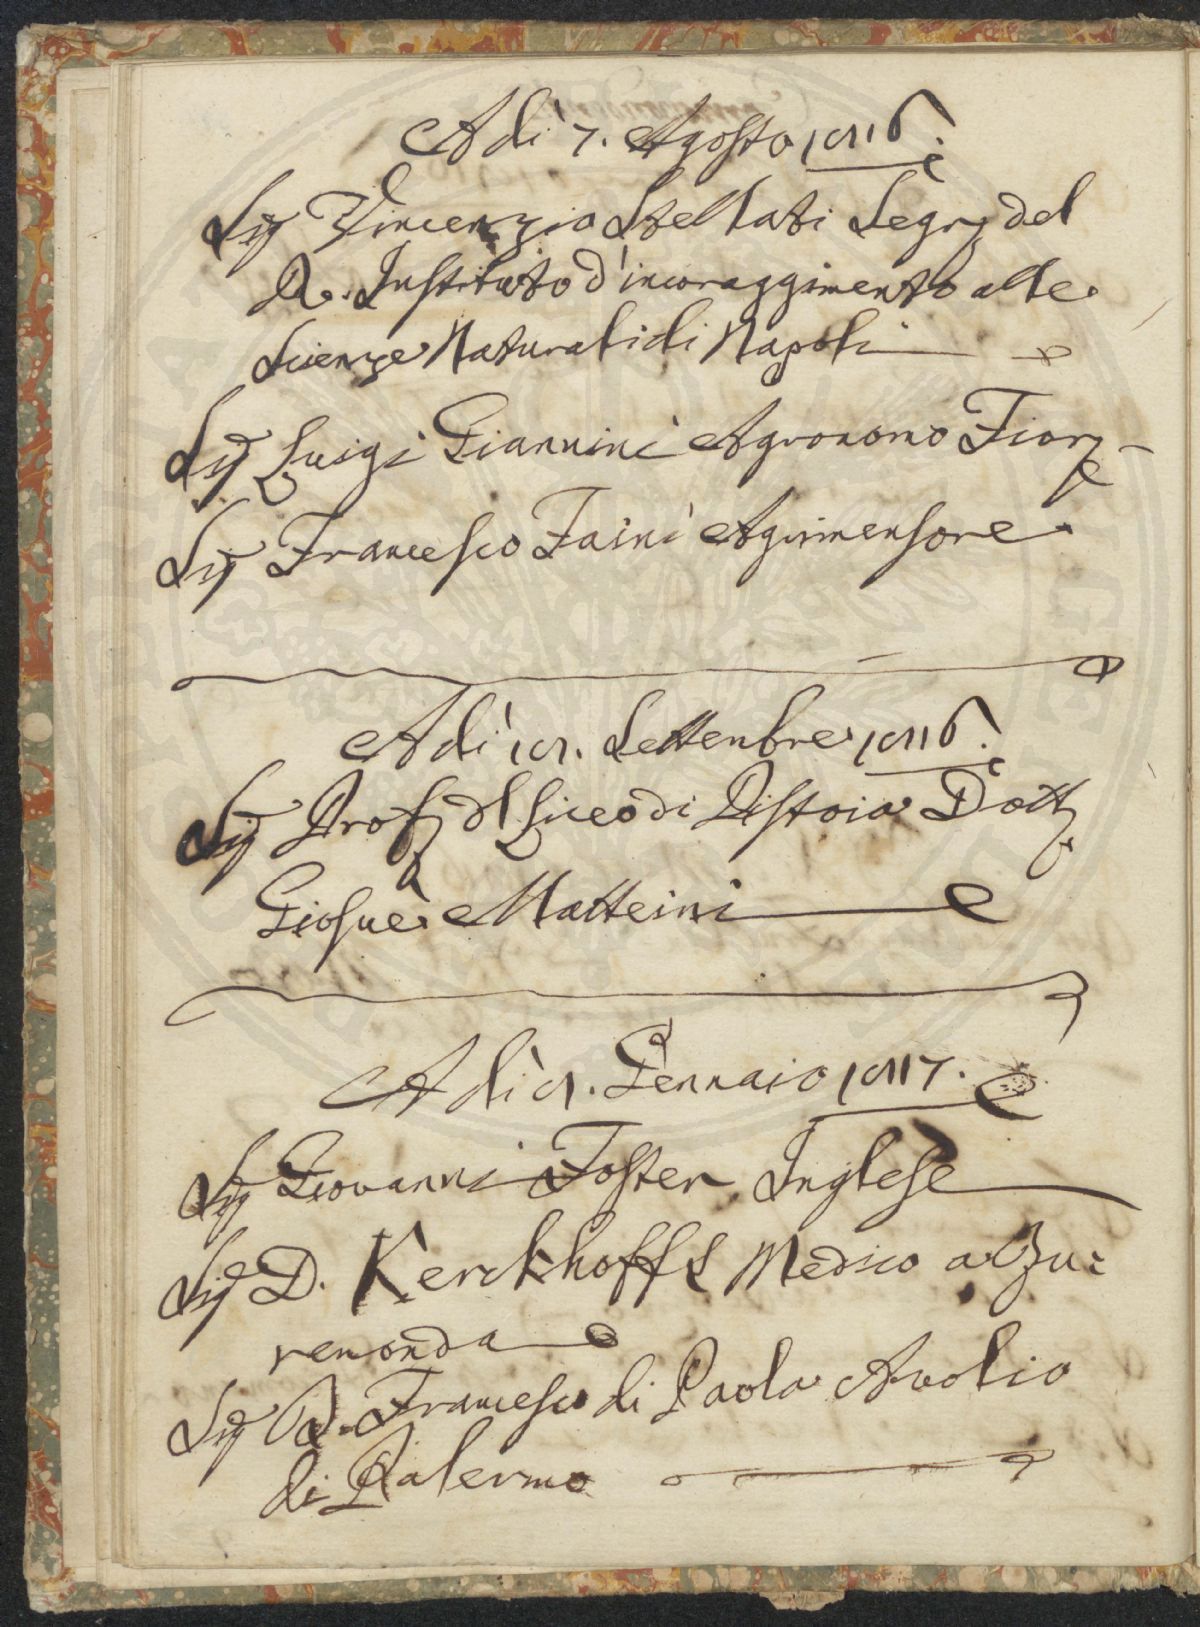 Adì 7. Agosto 1816.
Sig Vincenzio Stellati Segr del
R. Instituto d'incoraggimento alle
Scienze Naturali di Napoli
Sig Luigi Giannini Agronomo Fior
Sig Francesco Faini Agrimensore
Adì 18. Settenbre 1816.
Sig Prof dl Liceo di Pistoia Dott
Giosuè Matteini
Adì 8. Gennaio 1817.
Sig Giovanni Foster Inglese
Sig D. Kerckhoffs Medico a Zu:
remonda
Sig D. Francesco di Paola Avolio
di Palermo